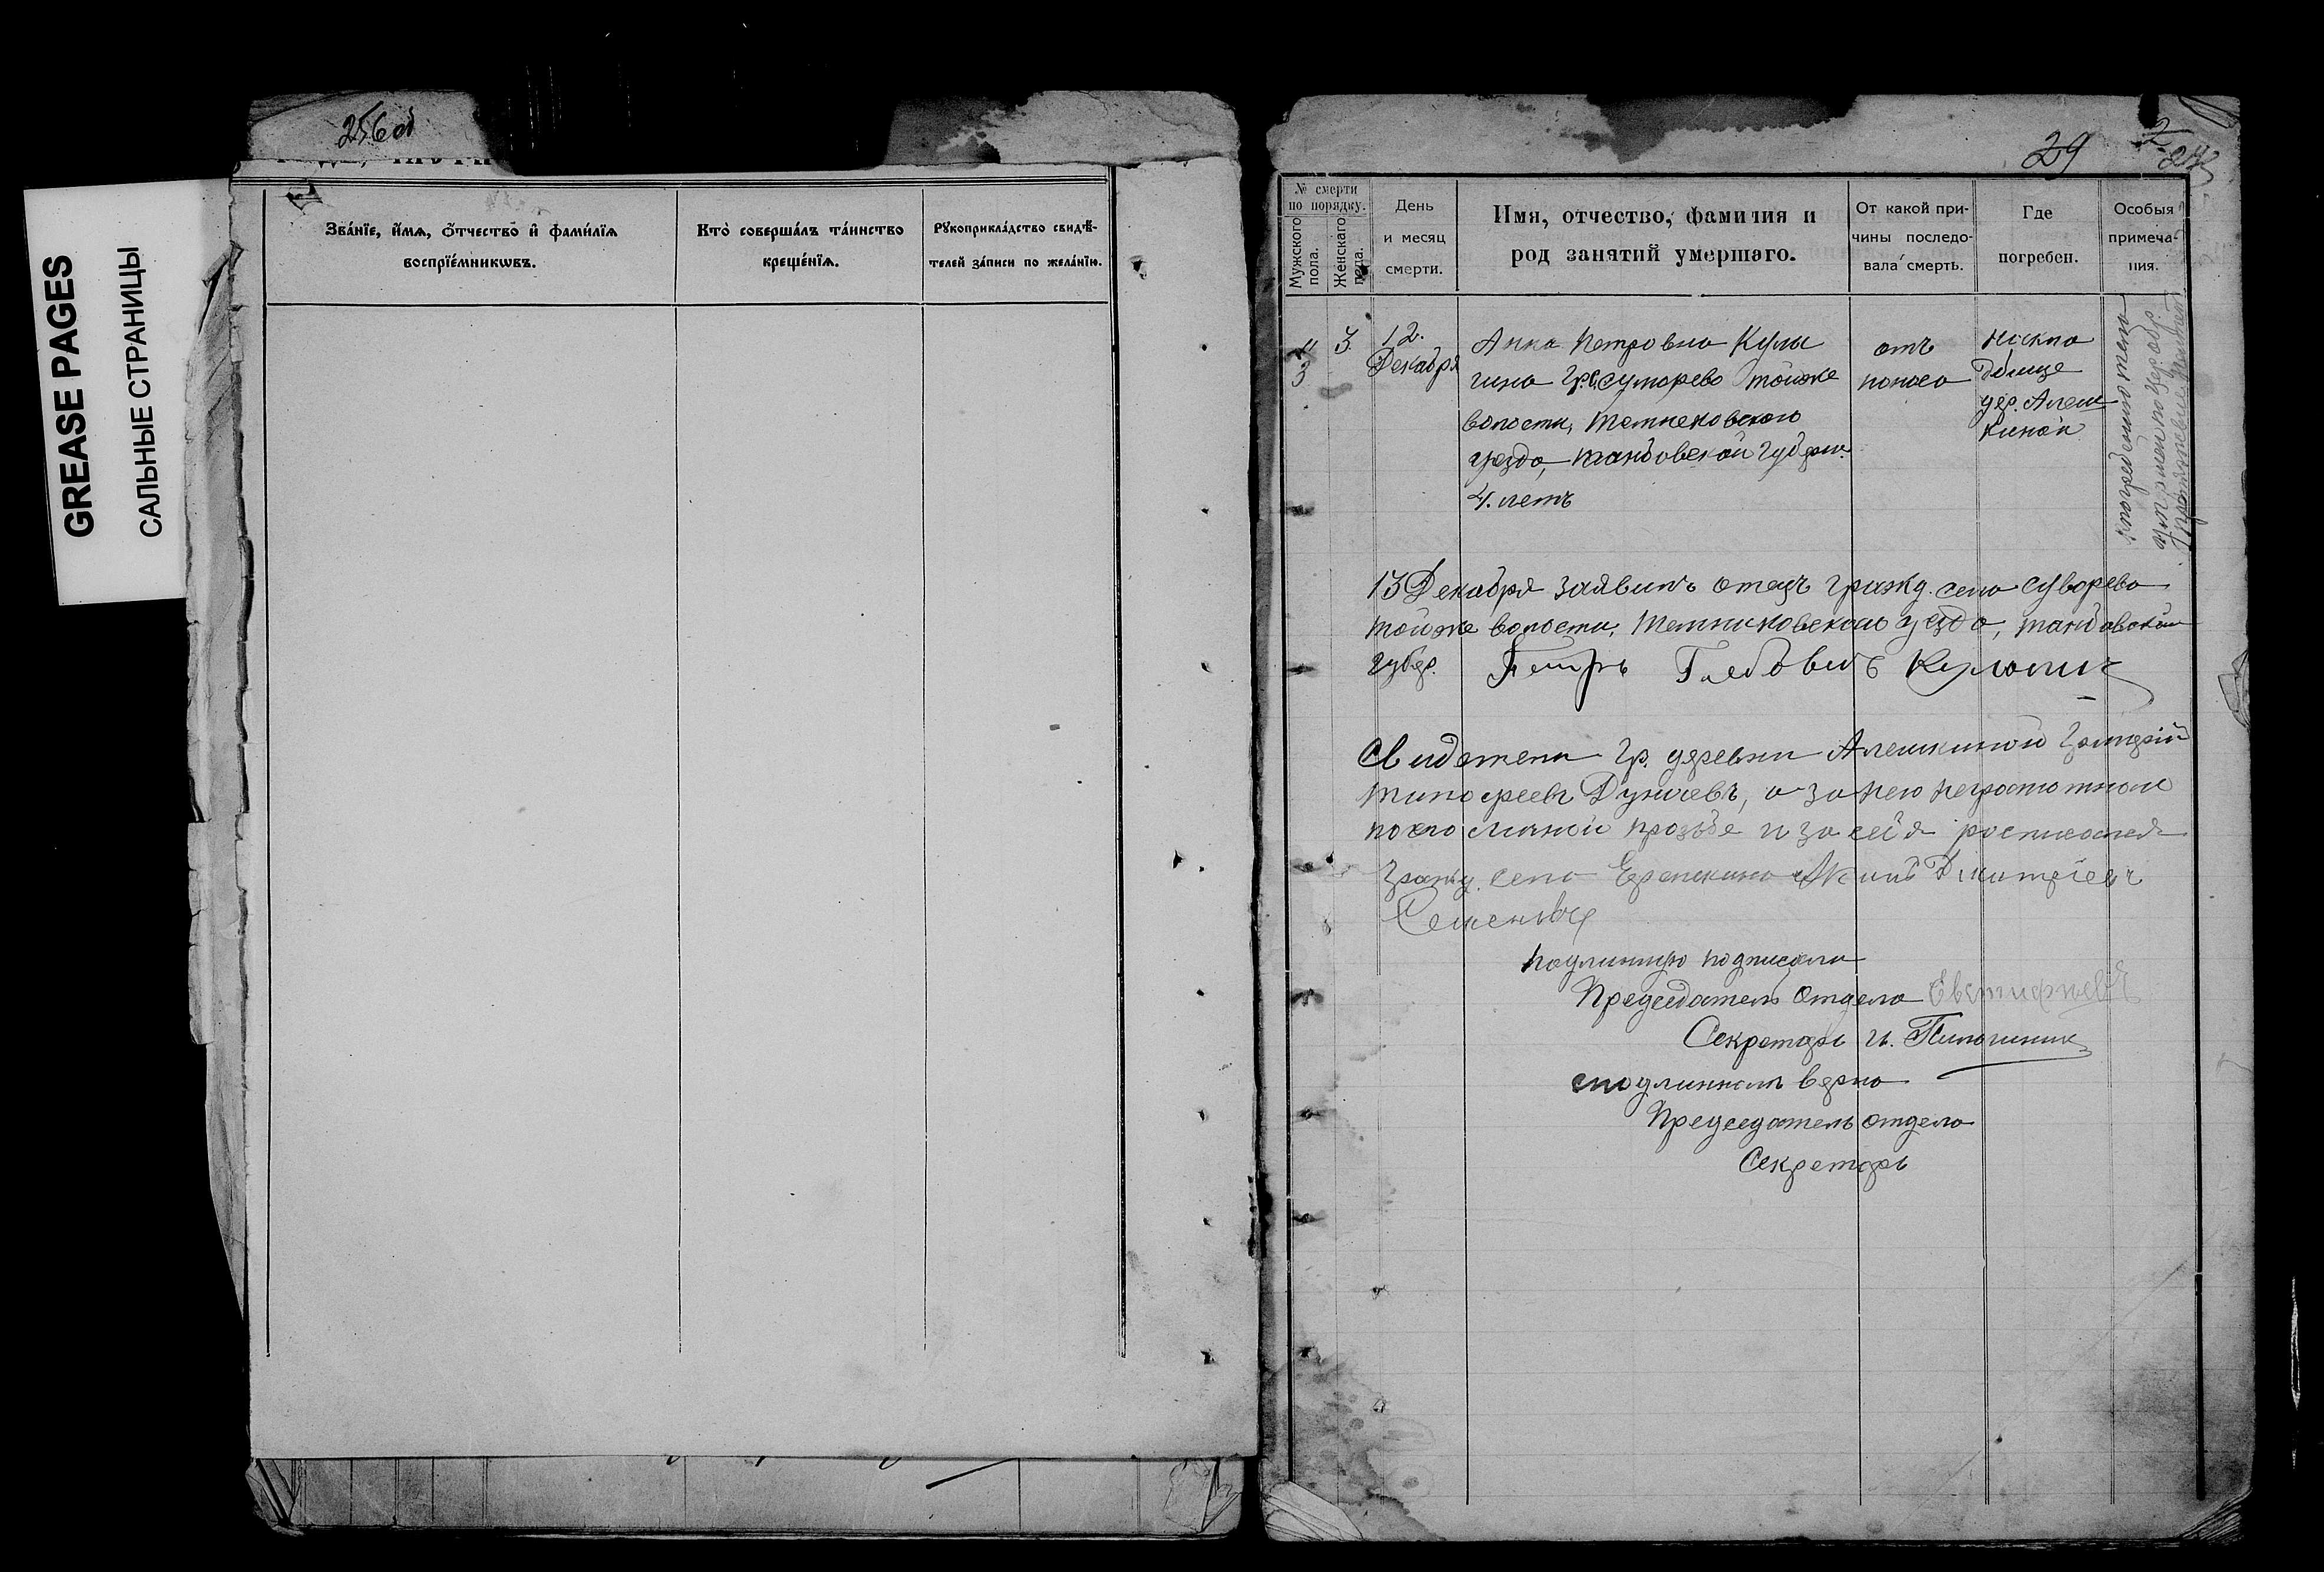 256 об
GREASE PAGES
САЛЬНЫЕ СТРАНИЦЫ
Зва́нїе, и́мѧ, ѻ҆́тчество и҆ фами́лїѧ
воспрїе́мникѡвъ.
Кто̀ соверша́лъ та́инство
креще́нїѧ.
Рꙋкоприкла́дство свидѣ́-
телей за́писи по жела́нїю.
29
№ смерти
по порядку.
Мужского
пола.
Женскаго
пола.
День
и месяц
смерти.
Имя, отчество, фамилия и
род занятий умершаго.
От какой при-
чины последо-
вала смерть.
Где
погребен.
Особыя
примеча-
ния.
3
3
12.
Декабря
Анна Петровна Кулю
гина гр. с. тойже
волости, Темнековскаго
уезда, Танбовской губерн.
4. летъ
отъ
поноса
на кла
дбище
дер. Алеш
киной
13 Декабря заявилъ отецъ гражд. села Суворево
тойже волости, Темниковскаго уезда, Танбовской
губер. Петръ Глебовичъ
Свидетели гр. деревни Алешкиной Григорий
Тимофеевъ, а за него неграмотнаго
по его личной прозьбе и за себя росписался
гражд. села Димитріевъ
Семеновъ
подлинную подписали
Председатель отдела
Секретарь И.
с подлинным верно
Председатель отдела
Секретарь